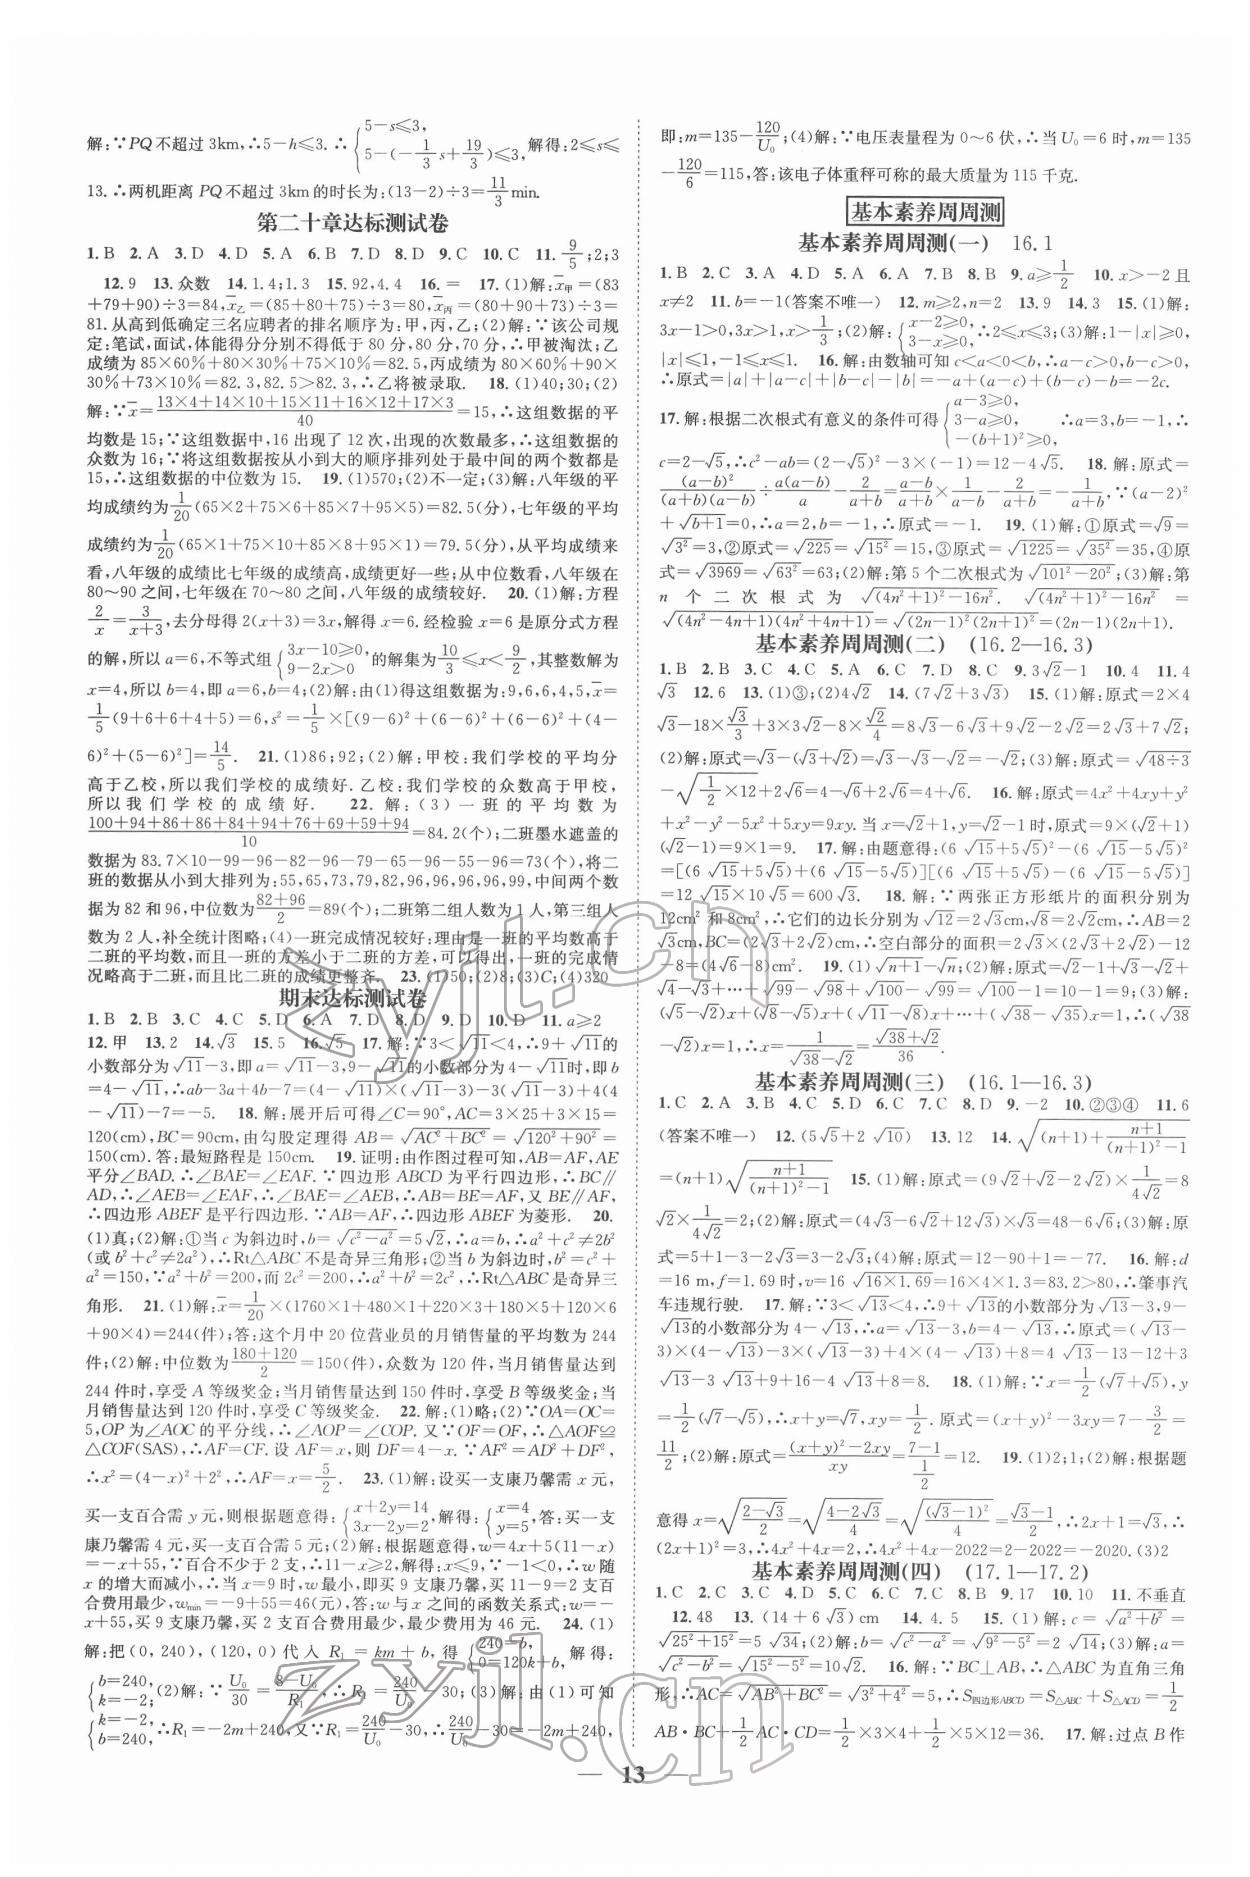 解:∵PQ不超过3km,∴5-h≤3. ∴{5-s≤3, 5-(-1/3s+19/3)≤3, 解得:2≤s≤
13.∴两机距离PQ不超过3km的时长为:(13-2)÷3=11/3min.
第二十章达标测试卷
1.B 2.A 3.D 4.D 5.A 6.B 7.D 8.D 9.C 10.C 11.9/5;2;3
12.9 13.众数 14.1.4;1.3 15.92,4.4 16.= 17.(1)解:x̄甲=(83
+79+90)÷3=84,x̄乙=(85+80+75)÷3=80,x̄丙=(80+90+73)÷3=
81.从高到低确定三名应聘者的排名顺序为:甲,丙,乙;(2)解:∵该公司规
定:笔试,面试,体能得分分别不得低于80分,80分,70分,∴甲被淘汰;乙
成绩为85×60%+80×30%+75×10%=82.5,丙成绩为80×60%+90×
30%+73×10%=82.3,82.5>82.3,∴乙将被录取. 18.(1)40;30;(2)
解:∵x̄=(13×4+14×10+15×11+16×12+17×3)/40=15,∴这组数据的平
均数是15;∵这组数据中,16出现了12次,出现的次数最多,∴这组数据的
众数为16;∵将这组数据按从小到大的顺序排列处于最中间的两个数都是
15,∴这组数据的中位数为15. 19.(1)570;(2)不一定;(3)解:八年级的平
均成绩约为1/20(65×2+75×6+85×7+95×5)=82.5(分),七年级的平均
成绩约为1/20(65×1+75×10+85×8+95×1)=79.5(分),从平均成绩来
看,八年级的成绩比七年级的成绩高,成绩更好一些;从中位数看,八年级在
80~90之间,七年级在70~80之间,八年级的成绩较好. 20.(1)解:方程
2/x=3/(x+3),去分母得2(x+3)=3x,解得x=6.经检验x=6是原分式方程
的解,所以a=6,不等式组{3x-10≥0, 9-2x>0 的解集为10/3≤x<9/2,其整数解为
x=4,所以b=4,即a=6,b=4;(2)解:由(1)得这组数据为:9,6,6,4,5,x̄=
1/5(9+6+6+4+5)=6,s²=1/5×[(9-6)²+(6-6)²+(6-6)²+(4-
6)²+(5-6)²]=14/5. 21.(1)86;92;(2)解:甲校:我们学校的平均分
高于乙校,所以我们学校的成绩好.乙校:我们学校的众数高于甲校,
所以我们学校的成绩好. 22.解:(3)一班的平均数为
(100+94+86+86+84+94+76+69+59+94)/10=84.2(个);二班墨水遮盖的
数据为83.7×10-99-96-82-96-79-65-55-96-96=73(个),将二
班的数据从小到大排列为:55,65,73,79,82,96,96,96,96,99,中间两个数
据为82和96,中位数为(82+96)/2=89(个);二班第二组人数为1人,第三组人
数为2人,补全统计图略;(4)一班完成情况较好:理由是一班的平均数高于
二班的平均数,而且一班的方差小于二班的方差,可以判定一班的完成情
况略高于二班,而且比二班的成绩更整齐. 23.(1)50;(2)8;(3)C;(4)320
期末达标测试卷
1.B 2.B 3.C 4.C 5.D 6.A 7.D 8.D 9.D 10.D 11.a≥2
12.甲 13.2 14.√3 15.5 16.√5 17.解:∵3<√11<4,∴9+√11的
小数部分为√11-3,即a=√11-3,9-√11的小数部分为4-√11,即b
=4-√11,∴ab-3a+4b-7=(4-√11)(√11-3)-3(√11-3)+4(4
-√11)-7=-5. 18.解:展开后可得∠C=90°,AC=3×25+3×15=
120(cm),BC=90cm,由勾股定理得AB=√(AC²+BC²)=√(120²+90²)=
150(cm).答:最短路程是150cm. 19.证明:由作图过程可知,AB=AF,AE
平分∠BAD.∴∠BAE=∠EAF.∵四边形ABCD为平行四边形,∴BC∥
AD,∴∠AEB=∠EAF,∴∠BAE=∠AEB,∴AB=BE=AF,又BE∥AF,
∴四边形ABEF是平行四边形.∵AB=AF,∴四边形ABEF为菱形. 20.
(1)真;(2)解:①当c为斜边时,b=√(c²-a²)=5√2,∴a²+c²≠2b²
(或b²+c²≠2a²),∴Rt△ABC不是奇异三角形;②当b为斜边时,b²=c²+
a²=150,∵a²+b²=200,而2c²=200,∴a²+b²=2c²,∴Rt△ABC是奇异三
角形. 21.(1)解:x̄=1/20×(1760×1+480×1+220×3+180×5+120×6
+90×4)=244(件);答:这个月中20位营业员的月销售量的平均数为244
件;(2)解:中位数为(180+120)/2=150(件),众数为120件,当月销售量达到
244件时,享受A等级奖金;当月销售量达到150件时,享受B等级奖金;当
月销售量达到120件时,享受C等级奖金. 22.解:(1)略;(2)∵OA=OC=
5,OP为∠AOC的平分线,∴∠AOP=∠COP.又∵OF=OF,∴△AOF≌
△COF(SAS),∴AF=CF.设AF=x,则DF=4-x.∵AF²=AD²+DF²,
∴x²=(4-x)²+2²,∴AF=x=5/2. 23.(1)解:设买一支康乃馨需x元,
买一支百合需y元,则根据题意得:{x+2y=14, 3x-2y=2, 解得:{x=4, y=5, 答:买一支
康乃馨需4元,买一支百合需5元;(2)解:根据题意得:w=4x+5(11-x)
=-x+55,∵百合不少于2支,∴11-x≥2,解得:x≤9,∵-1<0,∴w随
x的增大而减小,∴当x=9时,w最小,即买9支康乃馨,买2支百合
费用最少,wmin=-9+55=46(元),答:w与x之间的函数关系式:w=-
x+55,买9支康乃馨,买2支百合费用最少,最少费用为46元. 24.(1)
解:把(0,240),(120,0)代入R₁=km+b,得{240=b, 0=120k+b, 解得:
{b=240, k=-2;(2)解:∵U₀/30=(8-U₀)/R₁,∴R₁=240/U₀-30;(3)解:由(1)可知
{k=-2, b=240, ∴R₁=-2m+240,又∵R₁=240/U₀-30,∴240/U₀-30=-2m+240,
即:m=135-120/U₀;(4)解:∵电压表量程为0~6伏,∴当U₀=6时,m=135
-120/6=115,答:该电子体重秤可称的最大质量为115千克.
基本素养周周测
基本素养周周测(一) 16.1
1.B 2.C 3.A 4.D 5.A 6.A 7.B 8.B 9.a≥1/2 10.x>-2且
x≠2 11.b=-1(答案不唯一) 12.m≥2,n=2 13.9 14.3 15.(1)解:
3x-1>0,3x>1,x>1/3;(2)解:{x-2≥0, 3-x≥0, ∴2≤x≤3;(3)解:1-|x|≥0,
|x|≤1,-1≤x≤1. 16.解:由数轴可知c<a<0<b,∴a-c>0,b-c>0,
∴原式=|a|+|a-c|+|b-c|-|b|=-a+(a-c)+(b-c)-b=-2c.
17.解:根据二次根式有意义的条件可得{a-3≥0, 3-a≥0, -(b+1)²≥0, ∴a=3,b=-1,∴
c=2-√5,∴c²-ab=(2-√5)²-3×(-1)=12-4√5. 18.解:原式=
(a-b)²/(a+b)(a-b)÷a(a-b)/a-2/(a+b)=(a-b)/(a+b)×1/(a-b)-2/(a+b)=-1/(a+b),∵(a-2)²
+√(b+1)=0,∴a=2,b=-1,∴原式=-1. 19.(1)解:①原式=√9=
√3²=3,②原式=√225=√15²=15,③原式=√1225=√35²=35,④原
式=√3969=√63²=63;(2)解:第5个二次根式为√(101²-20²);(3)解:第
n个二次根式为√((4n²+1)²-16n²). √((4n²+1)²-16n²)=
√((4n²-4n+1)(4n²+4n+1))=√((2n-1)²(2n+1)²)=(2n-1)(2n+1).
基本素养周周测(二) (16.2—16.3)
1.B 2.B 3.C 4.C 5.A 6.C 7.D 8.C 9.3√2-1 10.4 11.4
√3 12.6 13.(1)③;(2)4√2 14.(7√2+3√3) 15.(1)解:原式=2×4
√3-18×√3/3+3×3√2-8×√2/4=8√3-6√3+9√2-2√2=2√3+7√2;
(2)解:原式=√3-(√3+√2)=√3-√3-√2=-√2;(3)解:原式=√(48÷3)
-√(1/2×12)+2√6=4-√6+2√6=4+√6. 16.解:原式=4x²+4xy+y²
+x²-y²-5x²+5xy=9xy.当x=√2+1,y=√2-1时,原式=9×(√2+1)
(√2-1)=9×1=9. 17.解:由题意得:(6√15+5√5)²-(6√15-5√5)²
=[(6√15+5√5)+(6√15-5√5)][(6√15+5√5)-(6√15-5√5)]
=12√15×10√5=600√3. 18.解:∵两张正方形纸片的面积分别为
12cm²和8cm²,∴它们的边长分别为√12=2√3cm,√8=2√2cm,∴AB=2
√3cm,BC=(2√3+2√2)cm,∴空白部分的面积=2√3×(2√3+2√2)-12
-8=(4√6-8)cm². 19.(1)√(n+1)-√n;(2)解:原式=√2-1+√3-√2
+…+√99-√98+√100-√99=√100-1=10-1=9;(3)解:
(√5-√2)x+(√8-√5)x+(√11-√8)x+…+(√38-√35)x=1,∴(√38
-√2)x=1,∴x=1/(√38-√2)=(√38+√2)/36.
基本素养周周测(三) (16.1—16.3)
1.C 2.A 3.B 4.C 5.D 6.C 7.C 8.D 9.-2 10.②③④ 11.6
(答案不唯一) 12.(5√5+2√10) 13.12 14.√((n+1)+(n+1)/((n+1)²-1))
=(n+1)√((n+1)/((n+1)²-1)) 15.(1)解:原式=(9√2+√2-2√2)×1/(4√2)=8
√2×1/(4√2)=2;(2)解:原式=(4√3-6√2+12√3)×√3=48-6√6;(3)解:原
式=5+1-3-2√3=3-2√3;(4)解:原式=12-90+1=-77. 16.解:d
=16m,f=1.69时,v=16√(16×1.69)=16×4×1.3=83.2>80,∴肇事汽
车违规行驶. 17.解:∵3<√13<4,∴9+√13的小数部分为√13-3,9-
√13的小数部分为4-√13,∴a=√13-3,b=4-√13,∴原式=(√13-
3)×(4-√13)-3×(√13-3)+4×(4-√13)+8=4√13-13-12+3
√13-3√13+9+16-4√13+8=8. 18.(1)解:∵x=1/2(√7+√5),y
=1/2(√7-√5),∴x+y=√7,xy=1/2.原式=(x+y)²-3xy=7-3/2=
11/2;(2)解:原式=((x+y)²-2xy)/xy=(7-1)/(1/2)=12. 19.(1)2;1;(2)解:根据题
意得x=√((2-√3)/2)=√((4-2√3)/4)=√((√3-1)²/4)=(√3-1)/2,∴2x+1=√3,∴
(2x+1)²=3,∴4x²+4x=2,∴4x²+4x-2022=2-2022=-2020.(3)2
基本素养周周测(四) (17.1—17.2)
1.C 2.C 3.D 4.C 5.D 6.C 7.C 8.B 9.17 10.10 11.不垂直
12.48 13.(14+6√3)cm 14.4.5 15.(1)解:c=√(a²+b²)=
√(25²+15²)=5√34;(2)解:b=√(c²-a²)=√(9²-5²)=2√14;(3)解:a=
√(c²-b²)=√(15²-5²)=10√2. 16.解:∵BC⊥AB,∴△ABC为直角三角
形,∴AC=√(AB²+BC²)=√(3²+4²)=5,∴S四边形ABCD=S△ABC+S△ACD=1/2
AB·BC+1/2AC·CD=1/2×3×4+1/2×5×12=36. 17.解:过点B作
— 13 —
zyjl.cn
zyjl.cn